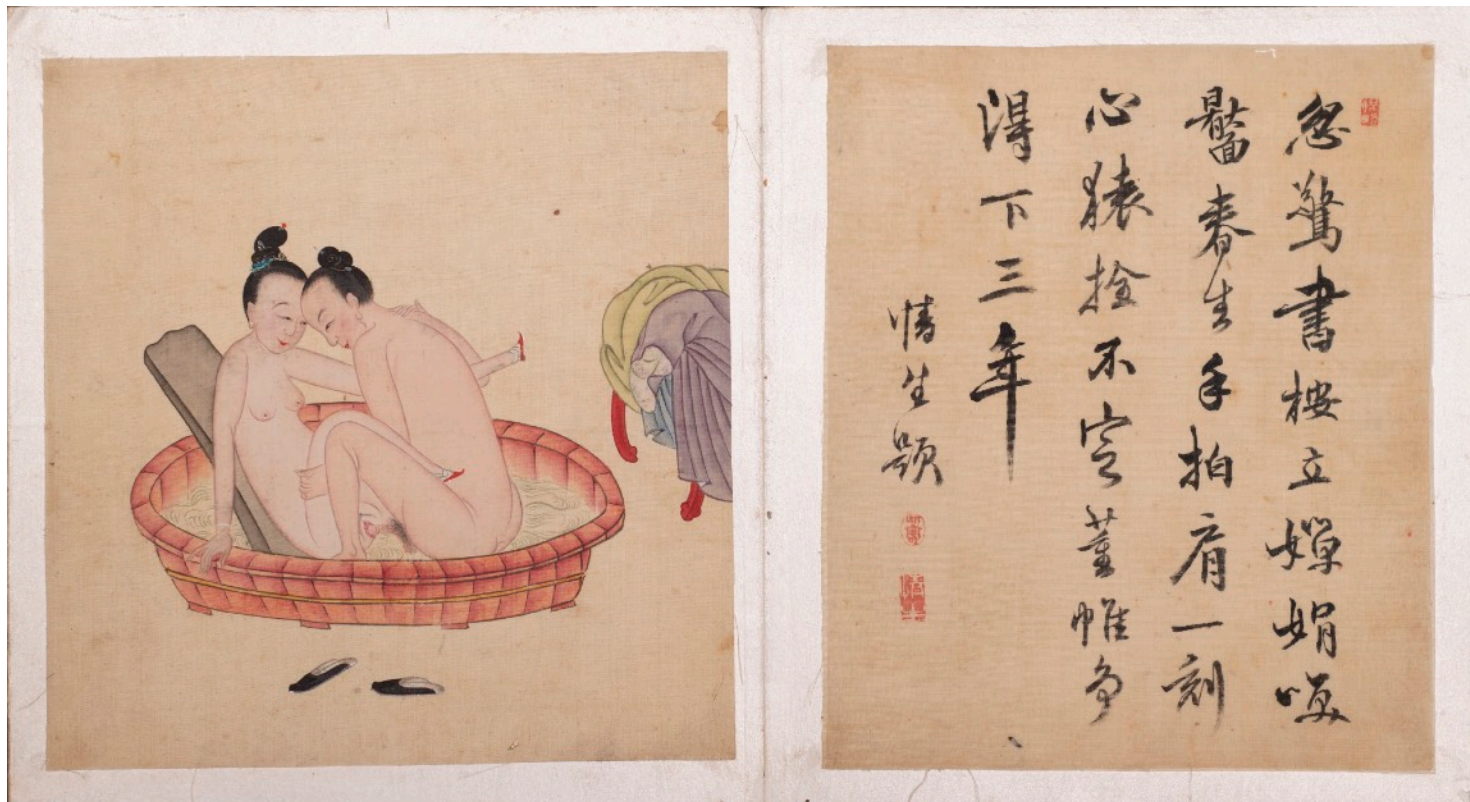 忽驚書樓立嬋娟喚
醫春生手拍肩一刻
心猿拴不定董帷争
得下三年
情生題